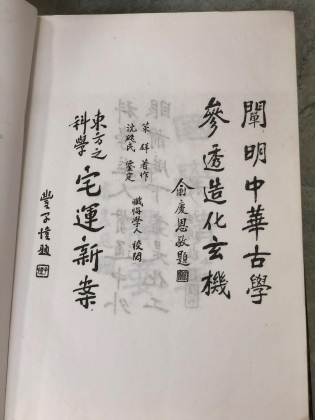 闡明中華古學
參透造化玄機
俞慶恩敬題
策群著作
沈瓞民鉴定
懺悔學人校閱
東方之科學
宅運新案
豐子愷題